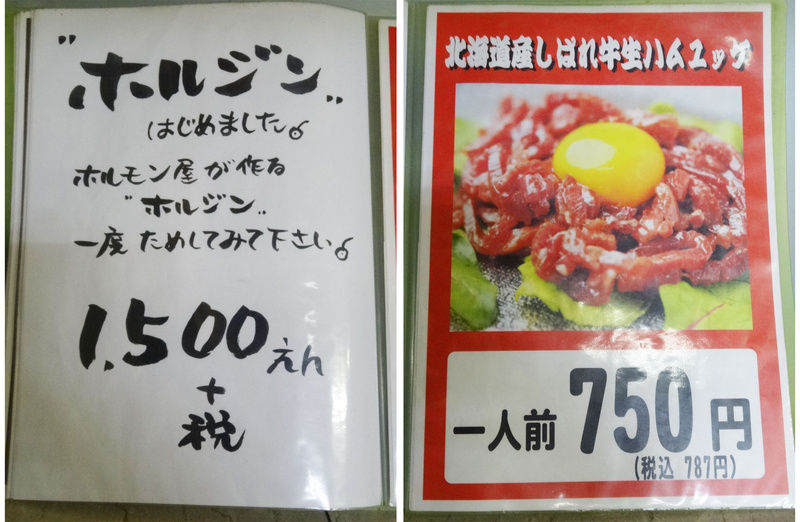 "ホルジン"
はじめました。
ホルモン屋が作る
"ホルジン"
一度ためしてみて下さい。
1,500えん
+
税
北海道産しばれ牛生ハムユッケ
一人前 750円
(税込 787円)